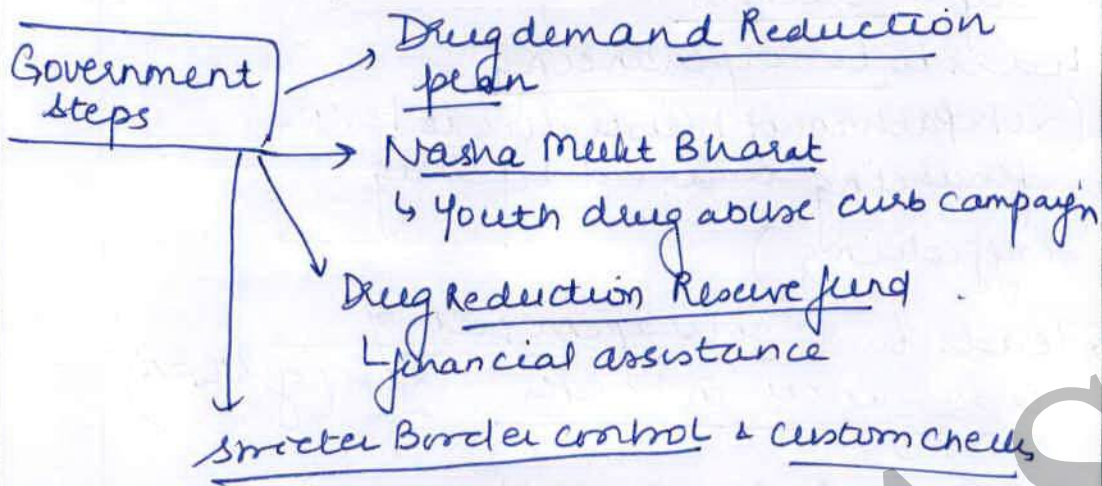 Government
steps
Drug demand Reduction
plan
Nasha Mukt Bharat
↳ Youth drug abuse curb campaign
Drug Reduction Reserve fund.
└ financial assistance
stricter Border control & custom checks